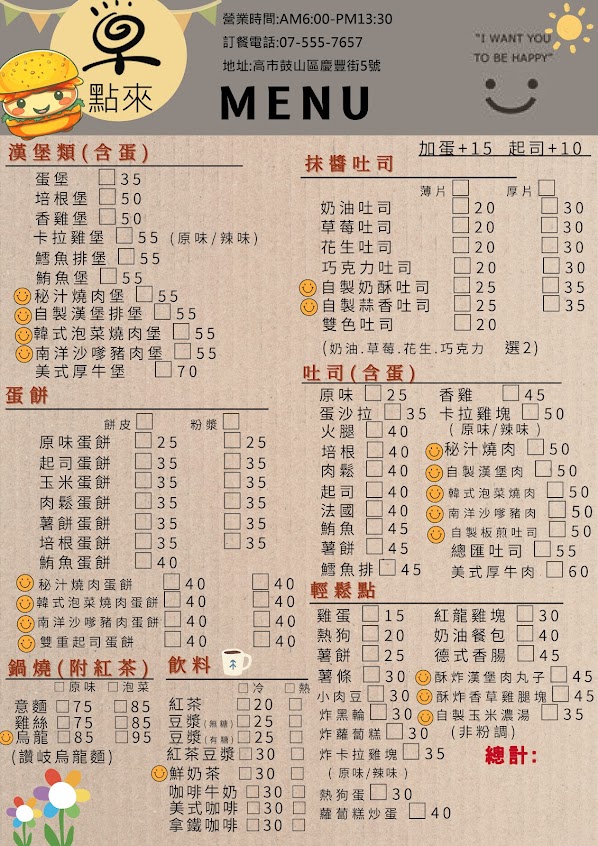 早
點來
營業時間:AM6:00-PM13:30
訂餐電話:07-555-7657
地址:高市鼓山區慶豐街5號
MENU
"I WANT YOU
TO BE HAPPY"
漢堡類(含蛋)
蛋堡 □35
培根堡 □50
香雞堡 □50
卡拉雞堡 □55 (原味/辣味)
鱈魚排堡 □55
鮪魚堡 □55
秘汁燒肉堡 □55
自製漢堡排堡 □55
韓式泡菜燒肉堡 □55
南洋沙嗲豬肉堡 □55
美式厚牛堡 □70
蛋餅
餅皮□ 粉漿□
原味蛋餅 □25 □25
起司蛋餅 □35 □35
玉米蛋餅 □35 □35
肉鬆蛋餅 □35 □35
薯餅蛋餅 □35 □35
培根蛋餅 □35 □35
鮪魚蛋餅 □40
秘汁燒肉蛋餅 □40 □40
韓式泡菜燒肉蛋餅 □40 □40
南洋沙嗲豬肉蛋餅 □40 □40
雙重起司蛋餅 □40 □40
鍋燒(附紅茶)
□原味 □泡菜
意麵□75 □85
雞絲□75 □85
烏龍□85 □95
(讚岐烏龍麵)
飲料
□冷 □熱
紅茶 □20 □
豆漿(無糖)□25 □
豆漿(有糖)□25 □
紅茶豆漿□30 □
鮮奶茶 □30 □
咖啡牛奶□30 □
美式咖啡□30 □
拿鐵咖啡□30 □
加蛋+15 起司+10
抹醬吐司
薄片□ 厚片□
奶油吐司 □20 □30
草莓吐司 □20 □30
花生吐司 □20 □30
巧克力吐司 □20 □30
自製奶酥吐司 □25 □35
自製蒜香吐司 □25 □35
雙色吐司 □20
(奶油.草莓.花生.巧克力 選2)
吐司(含蛋)
原味 □25
蛋沙拉 □35
火腿 □40
培根 □40
肉鬆 □40
起司 □40
法國 □40
鮪魚 □45
薯餅 □45
鱈魚排□45
香雞 □45
卡拉雞塊 □50
(原味/辣味)
秘汁燒肉 □50
自製漢堡肉 □50
韓式泡菜燒肉 □50
南洋沙嗲豬肉 □50
自製板煎吐司 □50
總匯吐司 □55
美式厚牛肉 □60
輕鬆點
雞蛋 □15
熱狗 □20
薯餅 □25
薯條 □30
小肉豆 □30
炸黑輪 □30
炸蘿蔔糕□30
炸卡拉雞塊 □35
(原味/辣味)
熱狗蛋□30
蘿蔔糕炒蛋 □40
紅龍雞塊 □30
奶油餐包 □40
德式香腸 □45
酥炸漢堡肉丸子 □45
酥炸香草雞腿塊 □45
自製玉米濃湯 □35
(非粉調)
總計: